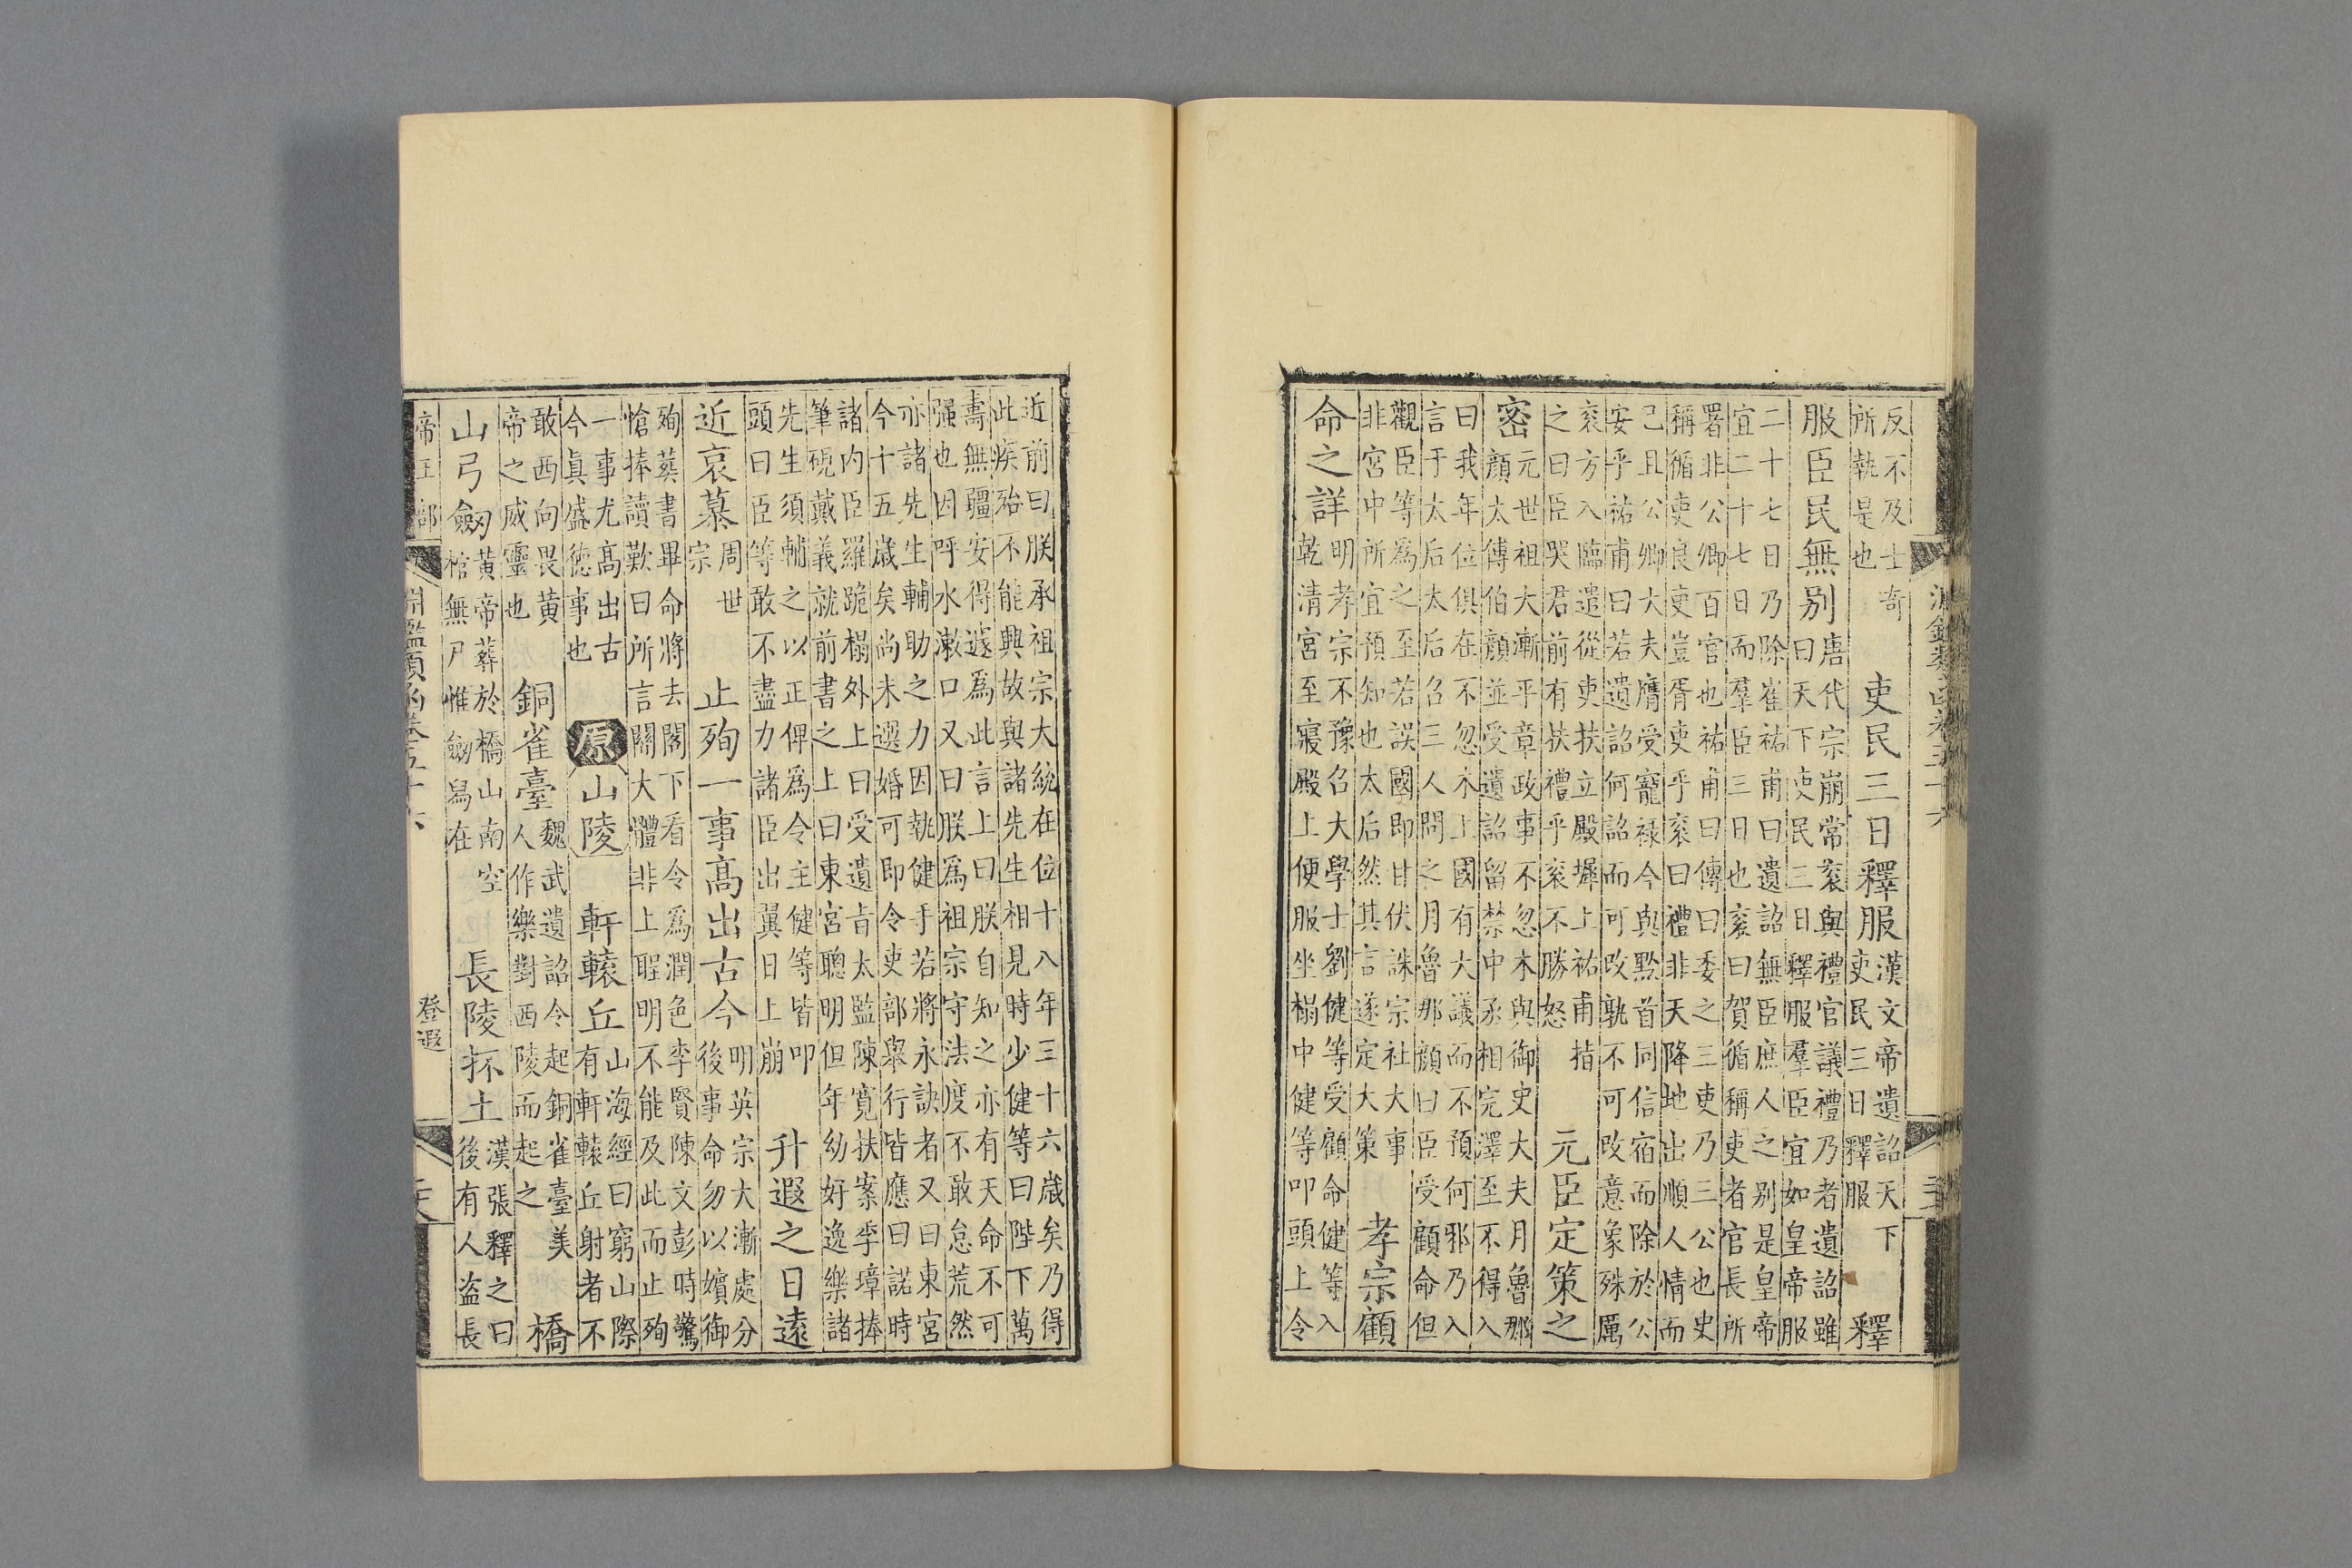 反不及士奇
所執是也
吏民三日釋服
漢文帝遺詔天下
吏民三日釋服
釋
服臣民無别
唐代宗崩常衮與禮官議禮乃者遺詔雖
曰天下吏民三日釋服羣臣宜如皇帝服
二十七日乃除崔祐甫曰遺詔無臣庶人之别是皇帝
宜二十七日而羣臣三日也衮曰賀循稱吏者官長所
署非公卿百官也祐甫曰傳曰委之三吏乃三公也史
稱循吏良吏豈胥吏乎衮曰禮非天降地出順人情而
己且公卿大夫膺受寵禄今與黔首同信宿而除於公
安乎祐甫曰若遺詔何詔而可改孰不可改意象殊厲
衮方入臨遣從吏扶立殿墀上祐甫指
之曰臣哭君前有扶禮乎衮不勝怒
元臣定策之
密
元世祖大漸平章政事不忽木與御史大夫月魯那
顔太傅伯顔並受遺詔留禁中丞相完澤至不得入
曰我年位俱在不忽木上國有大議而不預何邪乃入
言于太后太后召三人問之月魯那顔曰臣受顧命但
觀臣等爲之至若誤國即甘伏誅宗社大事
非宮中所宜預知也太后然其言遂定大策
孝宗顧
命之詳
明孝宗不豫召大學士劉健等受顧命健等入
乾清宮至寢殿上便服坐榻中健等叩頭上令
近前曰朕承祖宗大統在位十八年三十六歲矣乃得
此疾殆不能興故與諸先生相見時少健等曰陛下萬
壽無疆安得遽爲此言上曰朕自知之亦有天命不可
强也因呼水漱口又曰朕爲祖宗守法度不敢怠荒然
亦諸先生輔助之力因執健手若將永訣者又曰東宮
今十五歲矣尚未選婚可即令吏部舉行皆應曰諾時
諸内臣羅跪榻外上曰受遺旨太監陳寛扶案季璋捧
筆硯戴義就前書之上曰東宮聰明但年幼好逸樂諸
先生須輔之以正俾爲令主健等皆叩
頭曰臣等敢不盡力諸臣出翼日上崩
升遐之日遠
近哀慕
周世
宗
止殉一事高出古今
明英宗大漸處分
後事命勿以嬪御
殉葬書畢命將去閣下看令爲潤色李賢陳文彭時驚
愴捧讀歎曰所言關大體非上聖明不能及此而止殉
一事尤高出古
今眞盛德事也
原
山陵
軒轅丘
山海經曰窮山際
有軒轅丘射者不
敢西向畏黄
帝之威靈也
銅雀臺
魏武遺詔令起銅雀臺美
人作樂對西陵而起之
橋
山弓劍
黄帝葬於橋山南空
棺無尸惟劍舄在
長陵抔土
漢張釋之曰
後有人盗長
帝王部
淵鑑類函卷五十六
登遐